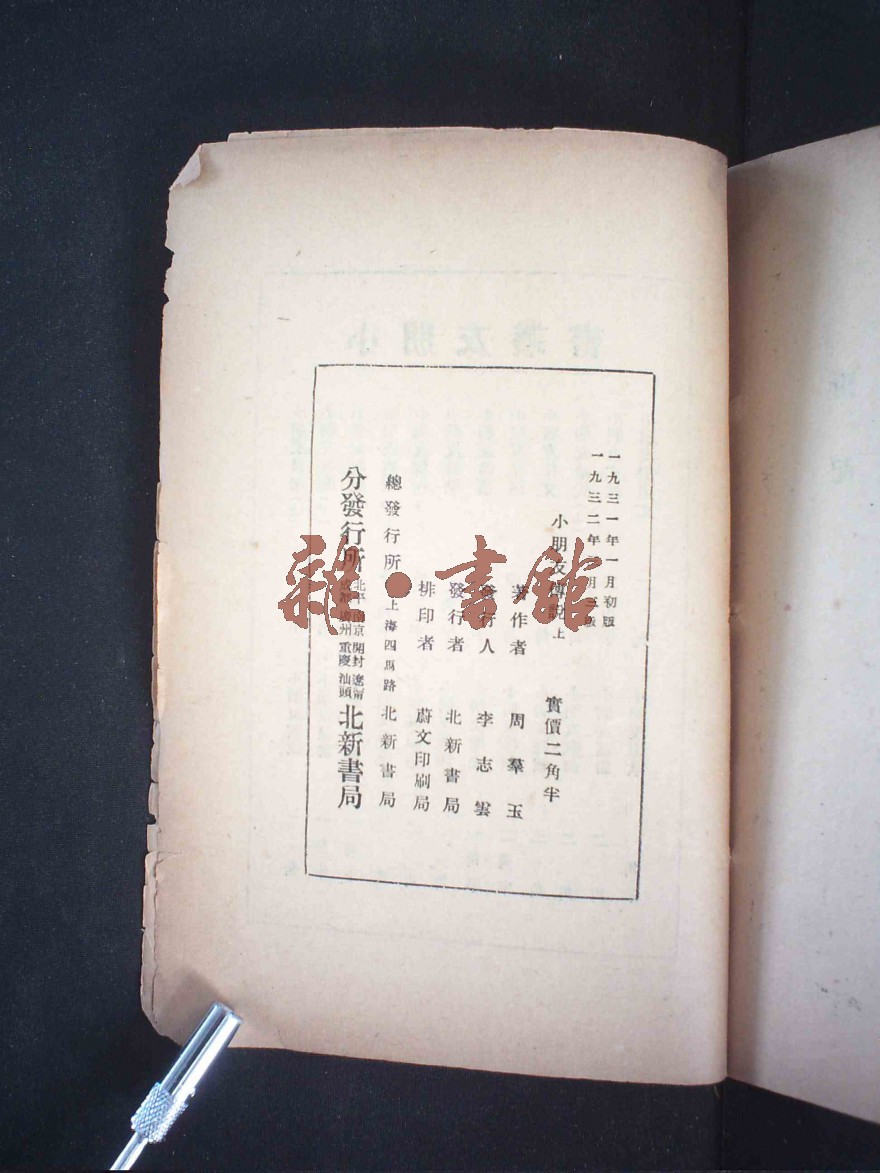 一九三一年一月初版
一九三二年 月三版
小朋友傳說上 實價二角半
著作者 周羣玉
發行人 李志雲
發行者 北新書局
排印者 蔚文印刷局
總發行所 上海四馬路 北新書局
分發行所 北平 南京 開封 遼甯 成都 廣州 重慶 汕頭 北新書局
雜·書館